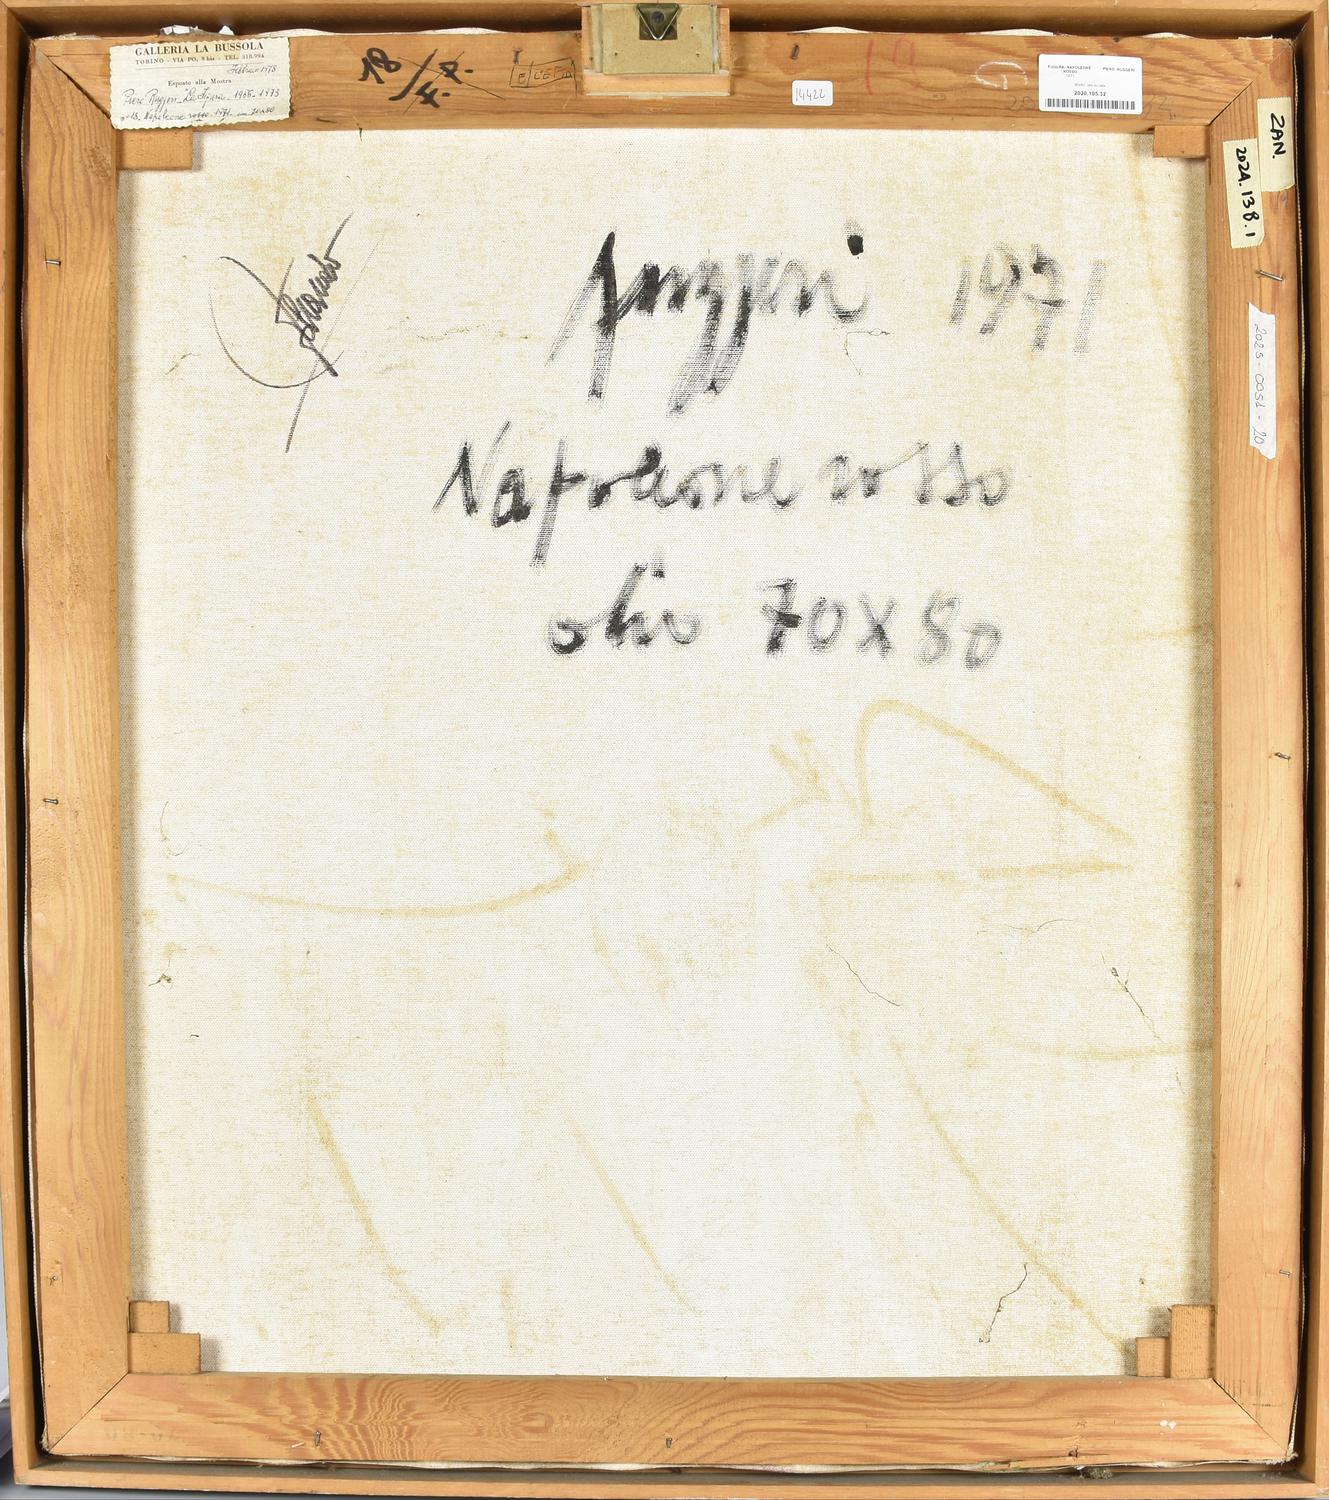 GALLERIA LA BUSSOLA
TORINO - VIA PO, 9 bis - TEL. 518.994
Febbraio 1973
Esposto alla Mostra
Piero Ruggeri - La Figura - 1968-1973
n° 18 - Napoleone rosso 1971 - cm 70x80
18
14422
FIGURA: NAPOLEONE ROSSO
PIERO RUGGERI
1971
2020.105.32
ZAN.
2024.138.1
2025-0051-20
Ruggeri 1971
Napoleone rosso
olio 70x80